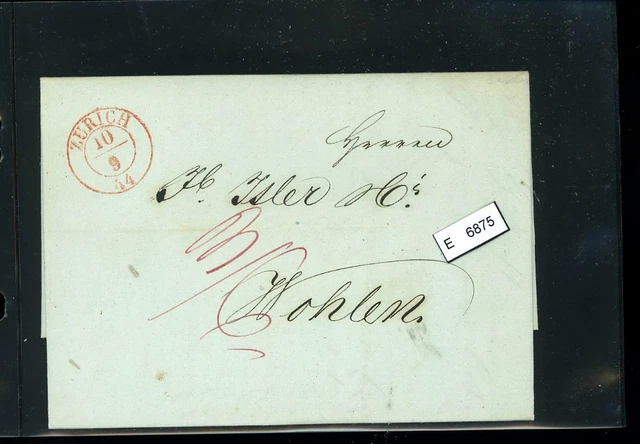 ZÜRICH
10
9
44
Herren
Jb. Isler
E 6875
Wohlen.